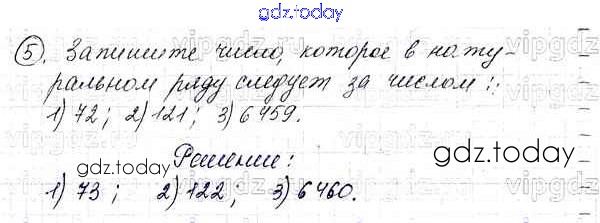 gdz.today
5. Запишите число, которое в нату-
ральном ряду следует за числом:
1) 72; 2) 121; 3) 6459.
gdz.today Решение: gdz.today
1) 73; 2) 122; 3) 6460.